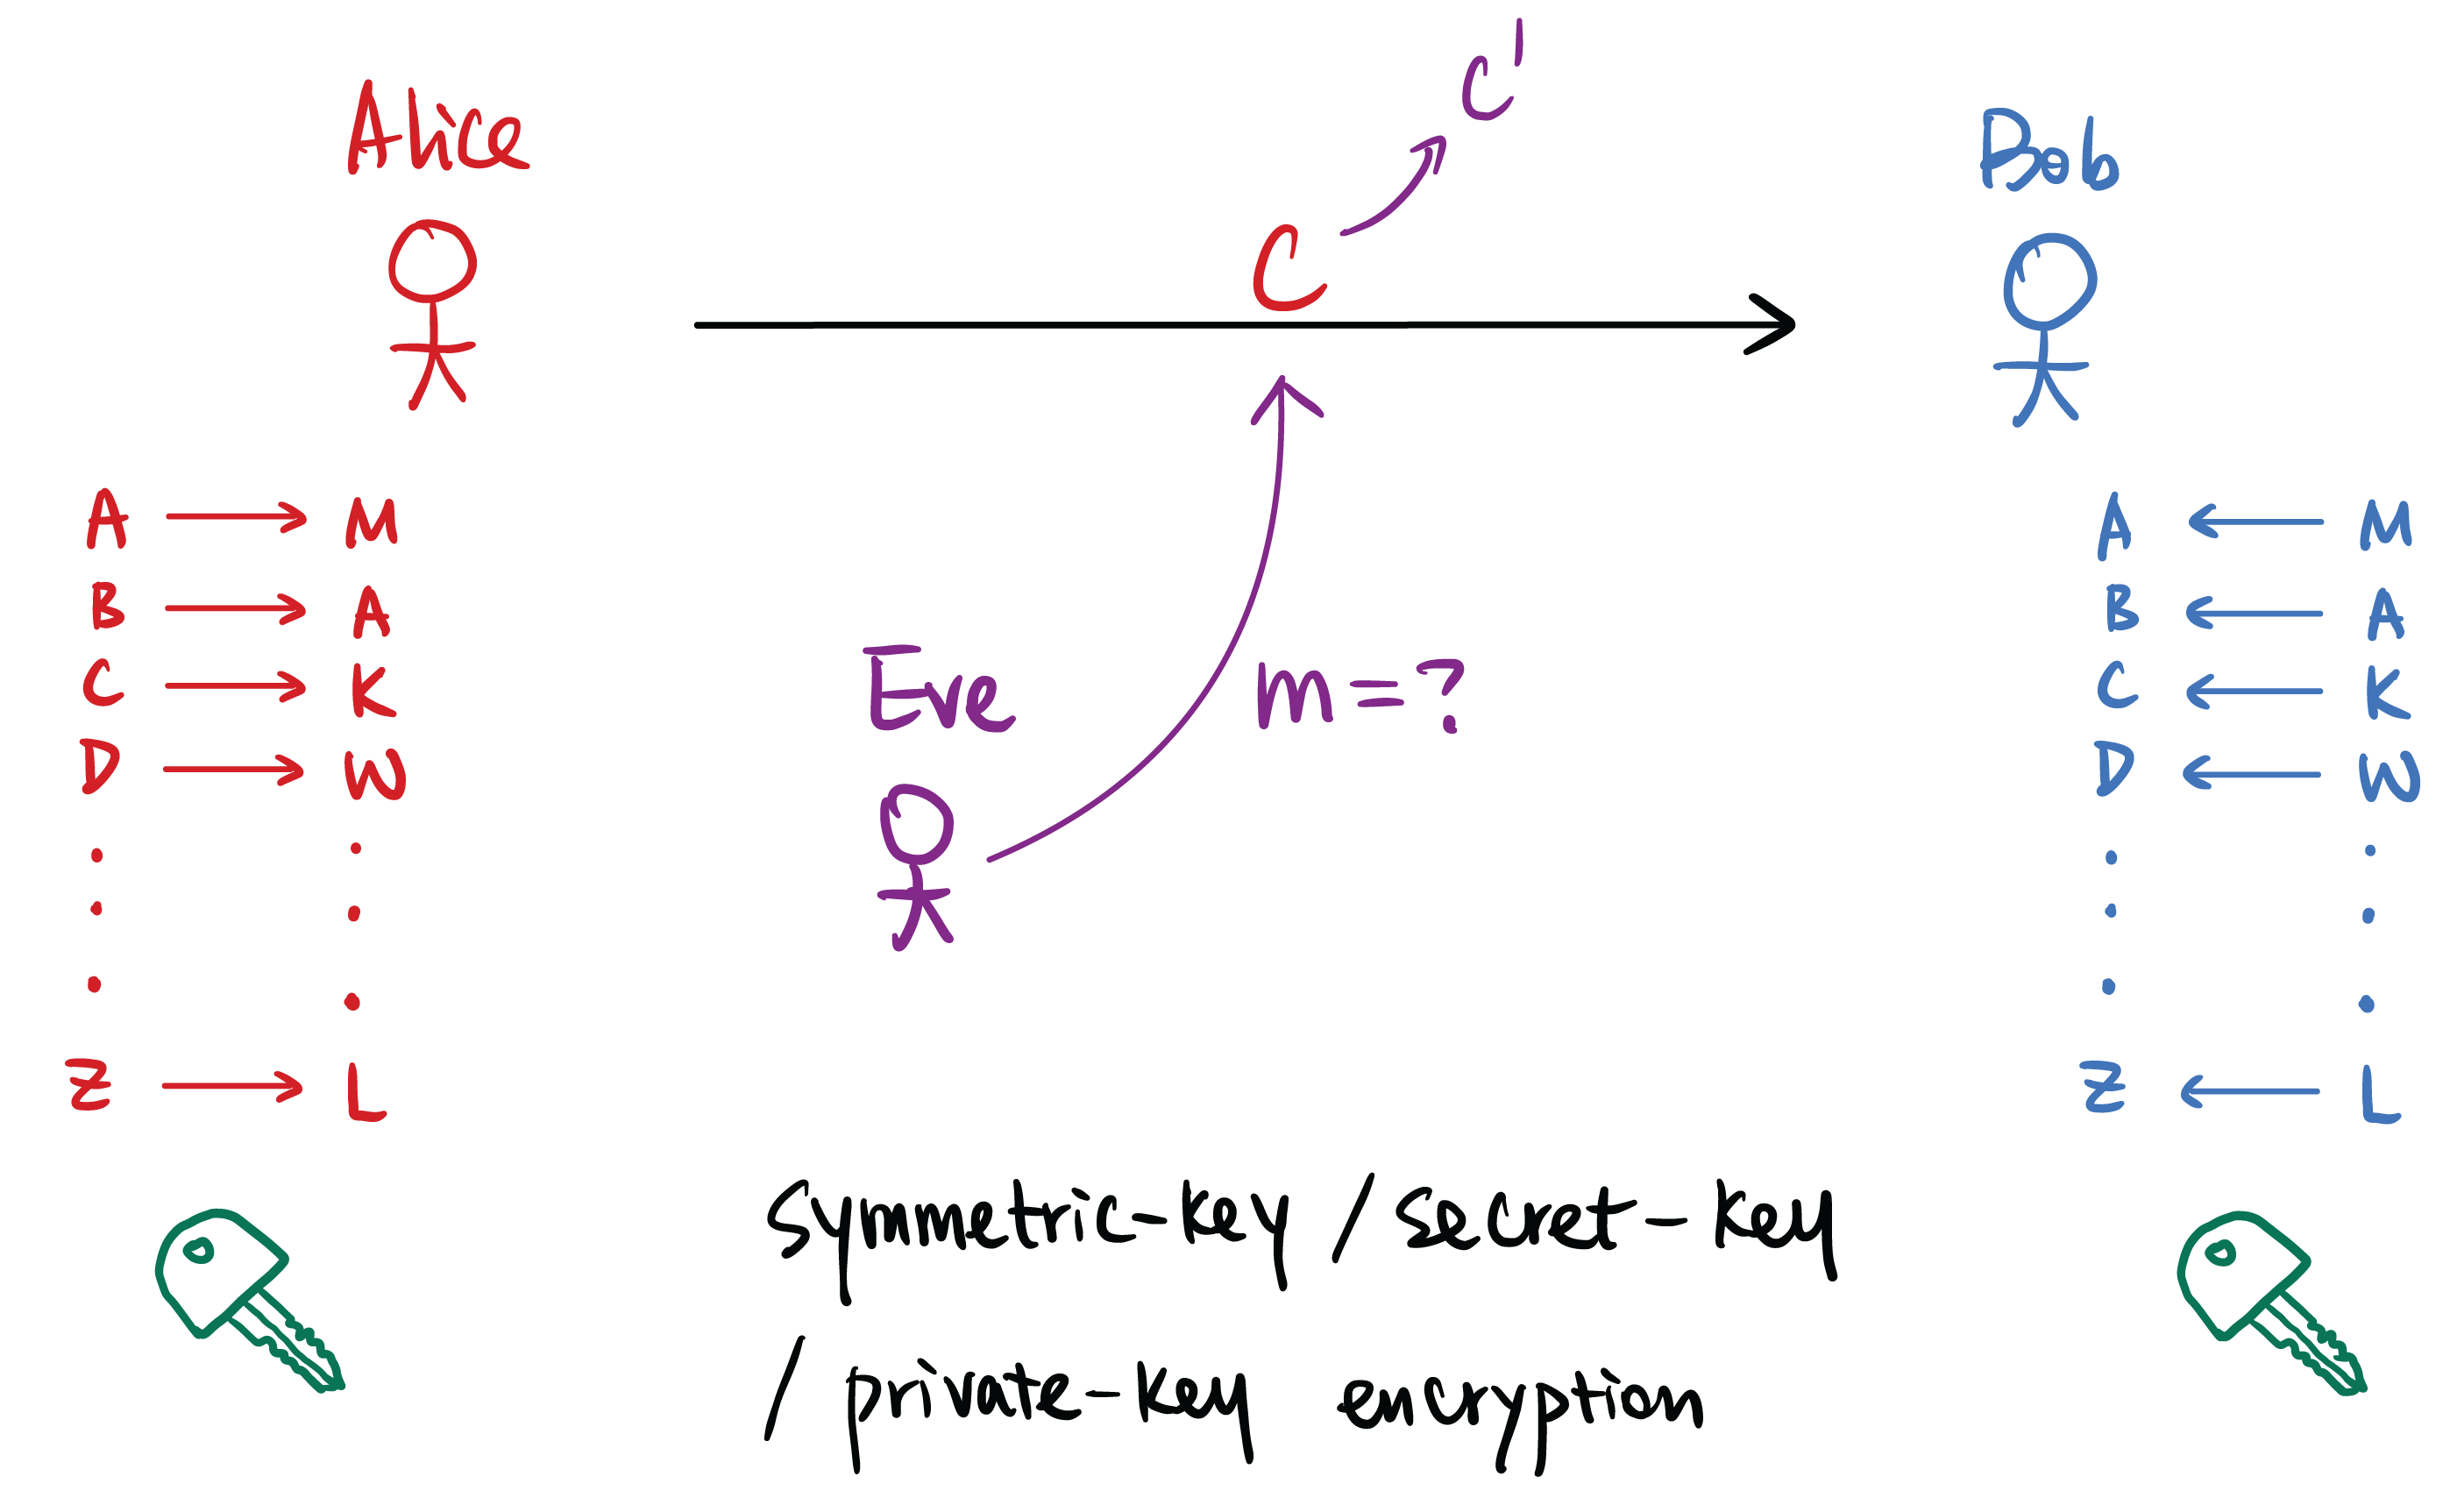 Alice
Bob
C'
C
A → M
B → A
C → K
D → W
Z → L
Eve
m=?
A ← M
B ← A
C ← K
D ← W
Z ← L
Symmetric-key/secret-key
/private-key encryption